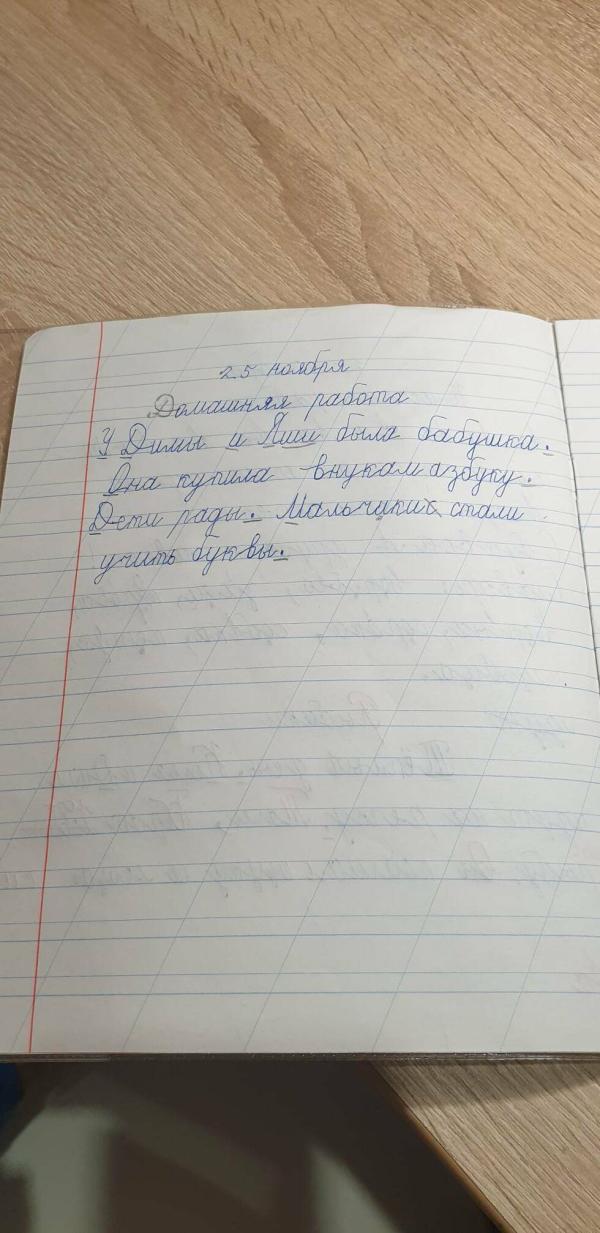 25 ноября
Домашняя работа
У Димы и Яши была бабушка.
Она купила внукам азбуку.
Дети рады. Мальчики стали
учить буквы.